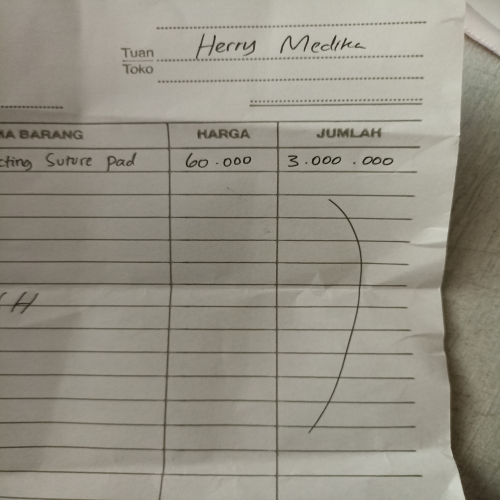 Tuan Herry Medika
Toko
BARANG HARGA JUMLAH
Suture pad 60.000 3.000.000